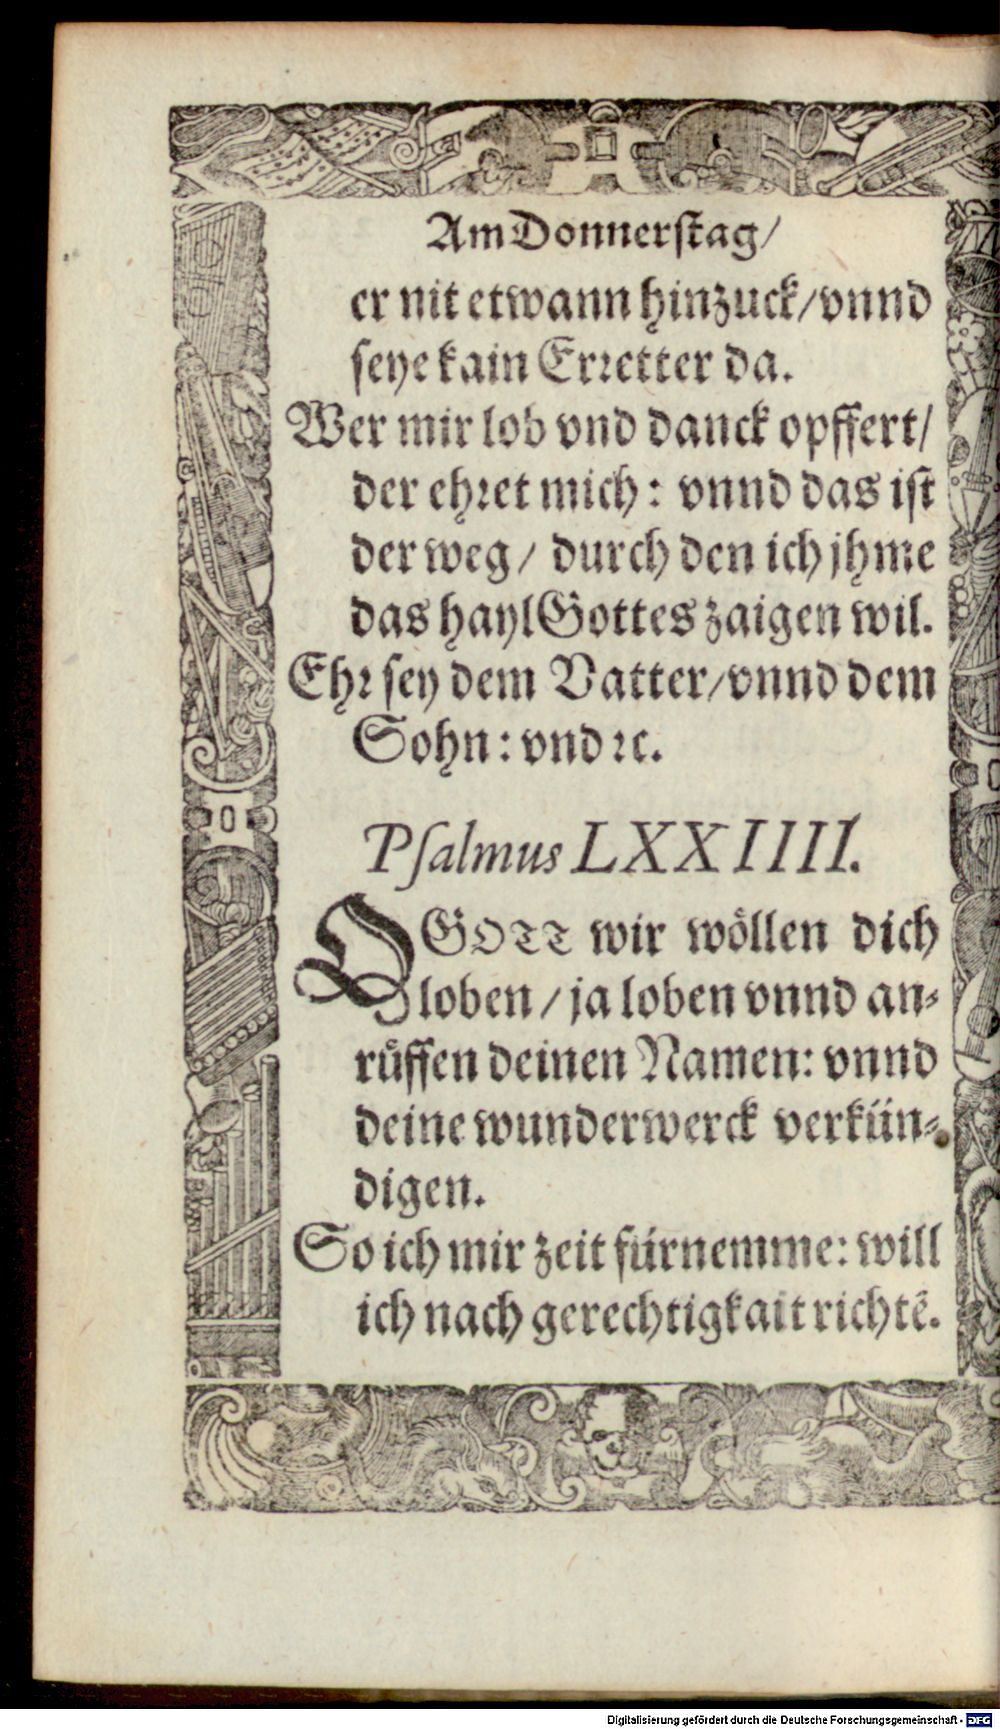 Am Donnerſtag/
er nit etwann hinzuck/vnnd
ſeye kain Erꝛetter da.
Wer mir lob vnd danck opffert/
der ehꝛet mich: vnnd das iſt
der weg/ durch den ich jhme
das hayl Gottes zaigen wil.
Ehꝛ ſey dem Vatter/vnnd dem
Sohn: vnd ꝛc.
Pſalmus LXXIIII.
O GOTT wir woͤllen dich
loben/ ja loben vnnd an⸗
ruͤffen deinen Namen: vnnd
deine wunderwerck verkün⸗
digen.
So ich mir zeit fürnemme: will
ich nach gerechtigkait richtẽ.
Digitalisierung gefördert durch die Deutsche Forschungsgemeinschaft - DFG